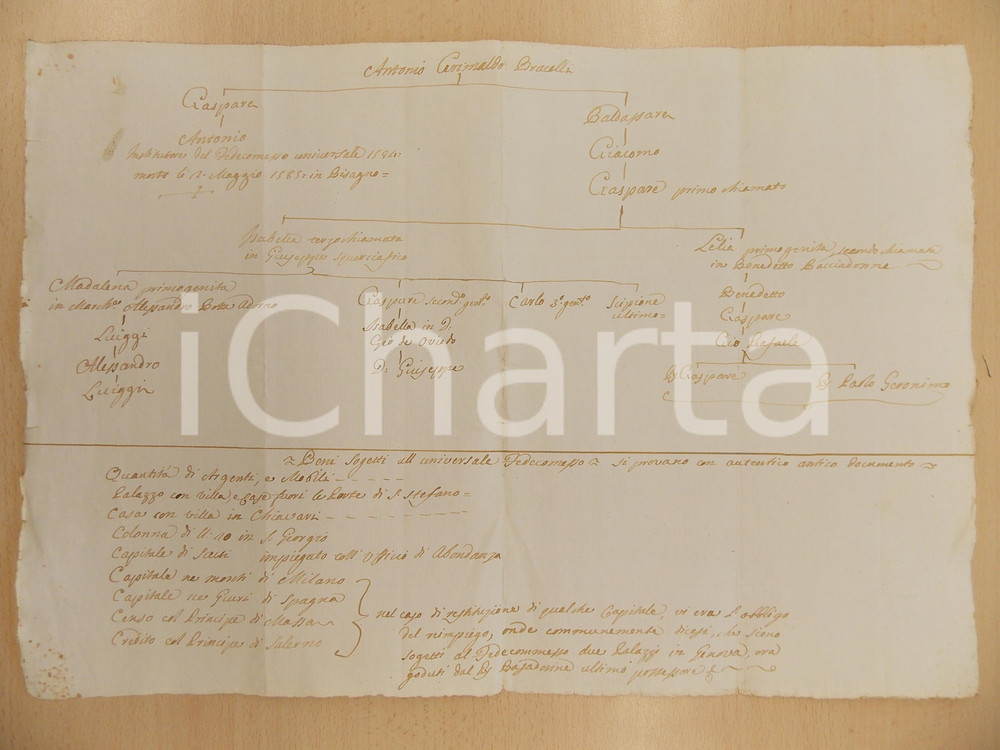 Antonio Grimaldo Bracelli
Gaspare
Baldassare
Antonio
Giacomo
Institutore del Fedecomesso universale 1584:
morto li 2. Maggio 1585: in Bisagno=
Gaspare primo chiamato
Isabella terzo chiamata
in Giuseppe Squarciafico
Lelia primogenita secondo chiamata
in Benedetto Bacciadonne
Madalena primogenita
in March.e Alessandro Botta Adorno
Gaspare second.o gent.o
Carlo 3.o gent.o
Scipione
ultimo=
Benedetto
Luiggi
Isabella in D.
Gio de Oviedo
Gaspare
Alessandro
D. Giuseppe
Gio Rafaele
Luiggi
Gaspare
Paolo Geronimo
iCharta
Beni sogetti all universale Fedecomesso si provano con autentico antico documento
Quantità di Argenti, e Mobili
Palazzo con villa, e case fuori le Porte di S. Stefano=
Casa con villa in Chiavari
Colonna di in S. Giorgio
Capitale di impiegato coll Officio di Abondanza
Capitale ne monti di Milano
Capitale ne Giuri di Spagna
Censo col Principe di Massa
Credito col Principe di Salerno
nel caso di restituzione di qualche Capitale, vi era l obbligo
del reimpiego, onde communemente dicesi, che siono
sogetti al Fedecommesso due Palazzi in Genova, ora
goduti dal Basadonne ultimo possessore